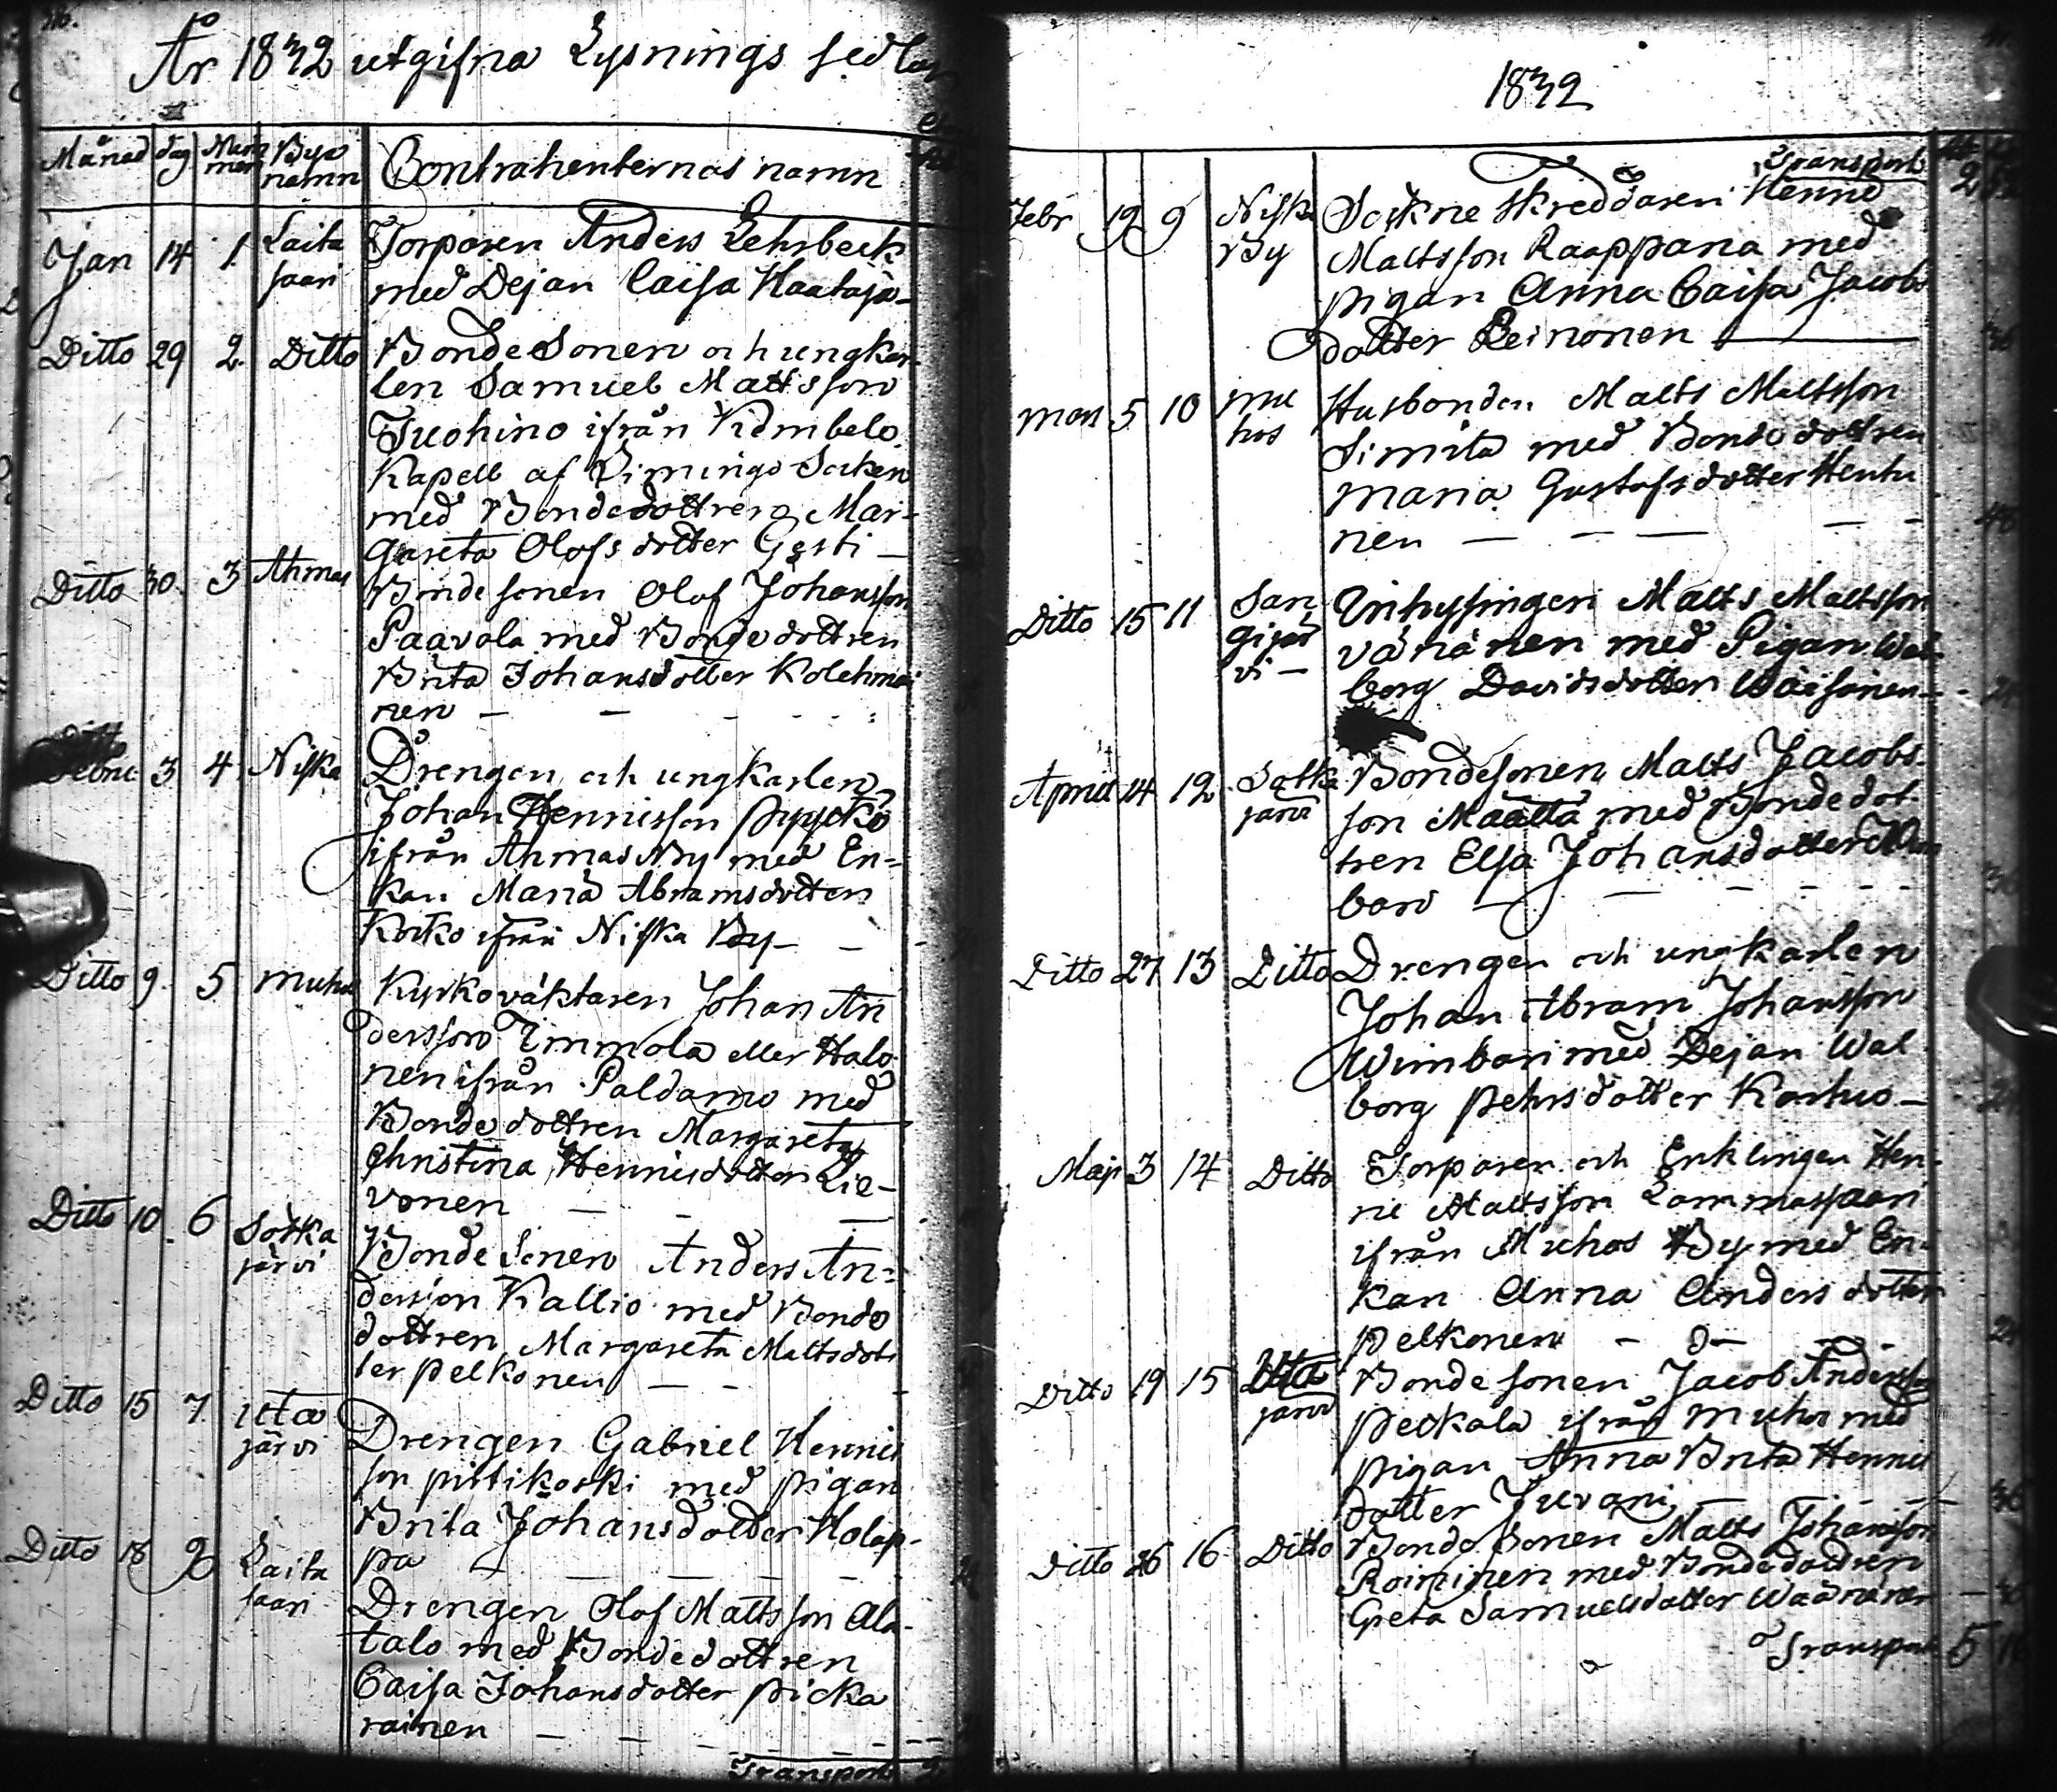 År 1832 utgifna Lysnings sedlar
Månad dag Num mer Bya namn Contrahenternas namn
Jan 14 1. Laita saari Torparen Anders Lehrbeck
med Dejan Caisa Haataja
Ditto 29 2. Ditto Bonde Sonen och ungkar
len Samuel Mattsson
Tuohino ifrån Kembele
Kapell af Limingo Socken
med Bondedottren Mar-
gareta Olofs dotter Gästi —
Ditto 30. 3 Ahmas Bonde sonen Olof Johansson
Paavola med Bonde dottren
Brita Johansdotter Kolehmai
nen —
Febru 3 4 Niska Drengen och ungkarlen
Johan Hennisson Pyyckö
ifrån Ahmas By med En=
kan Maria Abramsdotter
Korko ifrån Niska By —
Ditto 9. 5 Muhos Kyrkoväktaren Johan An
dersson Timmola eller Halo
nen ifrån Paldamo med
Bonde dottren Margareta
Christina Hennisdotter Lie-
vonen —
Ditto 10 6 Sotka järvi Bonde Sonen Anders An=
dersson Kallio med Bonde
dottren Margareta Mattsdot
ter Pelkonen —
Ditto 15 7. Uta järvi Drengen Gabriel Hennis
son Pittikoski med Pigan
Brita Johansdotter Holap-
pa —
Ditto 18 8 Laita saari Drengen Olof Mattsson Ala-
talo med Bondedottren
Caisa Johansdotter Picka
rainen —
Transport 2
1832
Transport 2
Febr 19 9 Niska By Sockne skreddaren Henric
Mattsson Raappana med
pigan Anna Caisa Jacobs
dotter Leinonen —
Mars 5 10 Mu hos Husbonden Matts Mattsson
Simila med Bonde dottren
Maria Gustafsdotter Hentu
nen —
Ditto 15 11 San gijär vi — Inhysingen Matts Mattsson
Vänänen med Pigan Wal
borg Davidsdotter Wäisänen —
April 14 12 Sotka järvi Bondesonen Matts Jacobs-
son Määttä med Bondedot
tren Elsa Johansdotter
bari —
Ditto 27 13 Ditto Drengen och ungkarlen
Johan Abram Johansson
Wimbari med Dejan Wal
borg Pehrsdotter Karhu —
Maji 3 14 Ditto Torparen och Enklingen Hen-
ric Mattsson Lammassaari
ifrån Muhos By med En-
kan Anna Anders dotter
Pelkonen —
Ditto 19 15 Uta järvi Bonde sonen Jacob Andersson
Peckala ifrån Muhos med
pigan Anna Brita Hennis
dotter Juvani —
Ditto 26 16 Ditto Bonde Sonen Matts Johansson
Roininen med Bondedottren
Greta Samuelsdotter Väänänen —
Transport 5